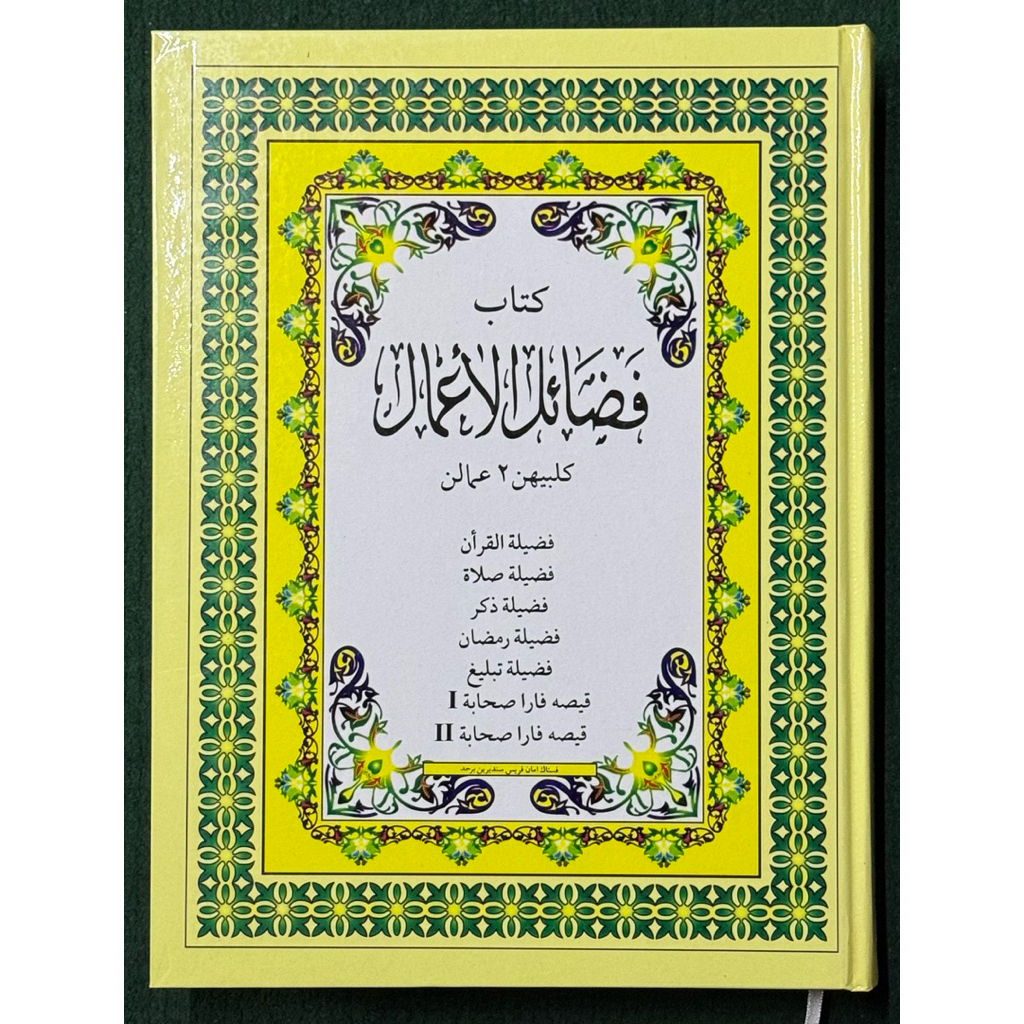 كتاب
فَضَائل الأعمال
كلبيهن ٢ عمالن
فضيلة القرأن
فضيلة صلاة
فضيلة ذكر
فضيلة رمضان
فضيلة تبليغ
قيصه فارا صحابة I
قيصه فارا صحابة II
فستاك امان فريس سنديرين برحد